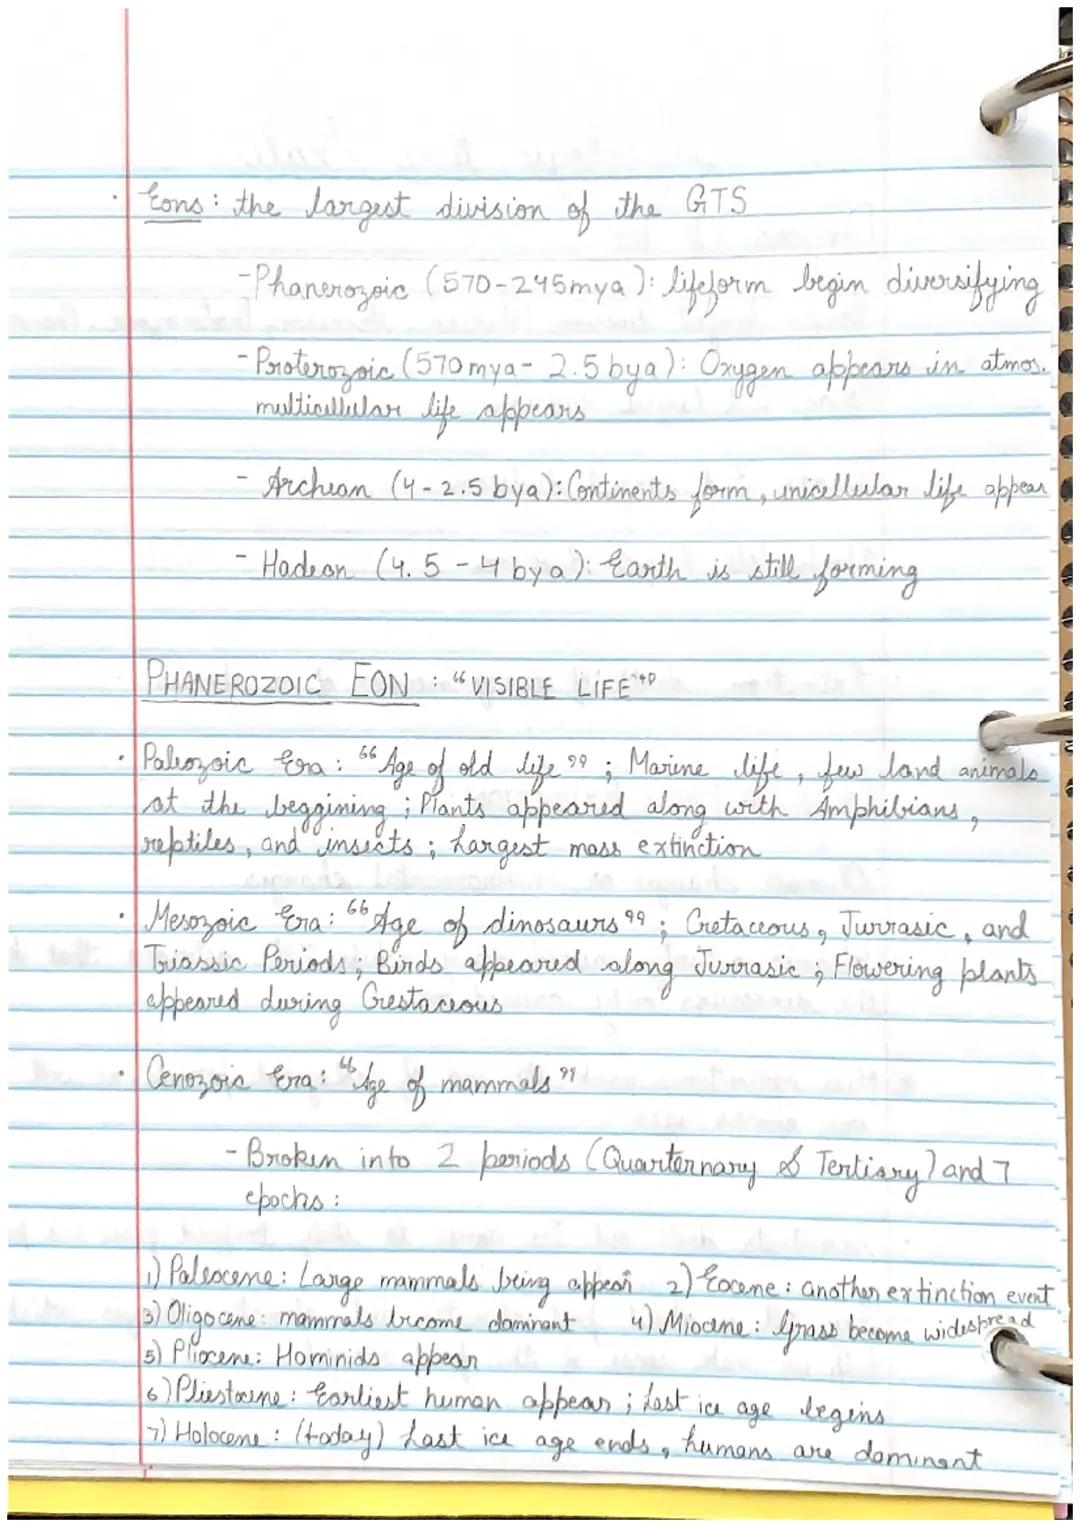 · Eons: the largest division of the GTS
-Phanerozoic (570-245mya): lifeform begin diversifying
-Proterozoic (570mya- 2.5bya): Oxygen appears in atmos.
multicellular life appears
- Archean (4-2.5bya): Continents form, unicellular life appear
- Hadean (4.5-4bya): Earth is still forming
PHANEROZOIC EON : "VISIBLE LIFE"
· Paleozoic Era: "Age of old life"; Marine life, few land animals
at the beggining; Plants appeared along with Amphibians,
reptiles, and insects; Largest mass extinction
· Mesozoic Era: "Age of dinosaurs"; Cretaceous, Jurrasic, and
Triassic Periods; Birds appeared along Jurrasic; Flowering plants
appeared during Crestaceous
· Cenozoic Era: "Age of mammals"
-Broken into 2 periods (Quarternary & Tertiary) and 7
epochs:
1) Paleocene: Large mammals being appear 2) Eocene: another extinction event
3) Oligocene: mammals become dominant 4) Miocene: Grass become widespread
5) Pliocene: Hominids appear
6) Pliestocene: Earliest human appear; Last ice age begins
7) Holocene: (today) Last ice age ends, humans are dominant